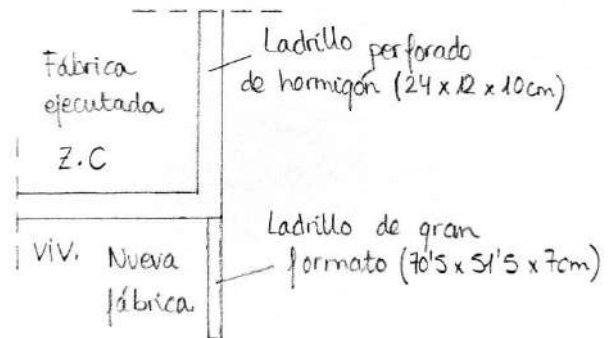 Fábrica
ejecutada
Z.C
Ladrillo perforado
de hormigón (24 x 12 x 10cm)
VIV. Nueva
fábrica
Ladrillo de gran
formato (70'5 x 51'5 x 7cm)